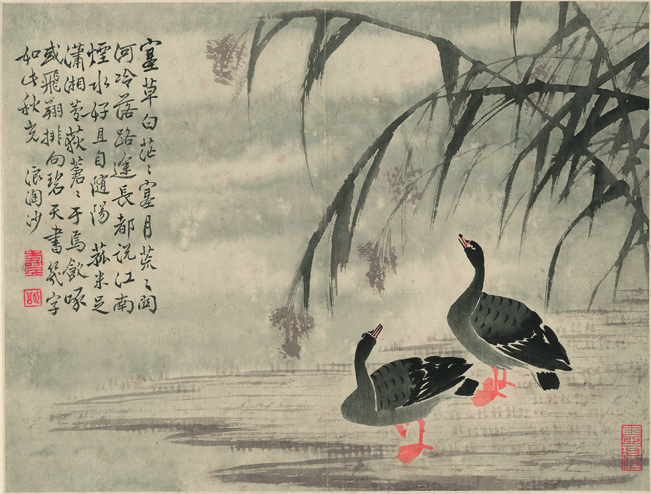 塞草白茫〻塞月荒〻關
河冷落路途長都說江南
煙水好且自隨陽 菰米足
瀟湘葦荻蒼〻于焉飲啄
或飛翔排向碧天書幾字
如此秋光 浪淘沙